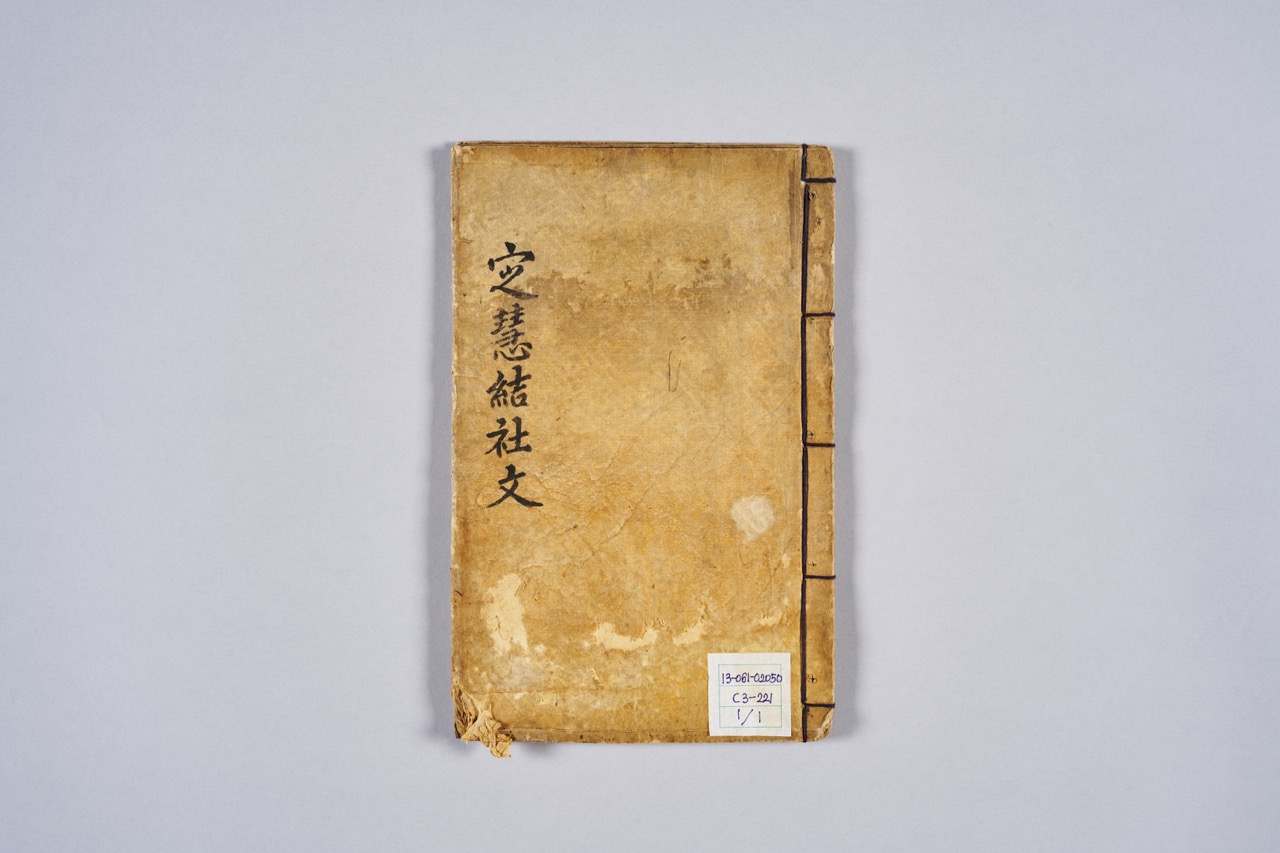 定慧結社文
13-061-02050
C3-221
1/1